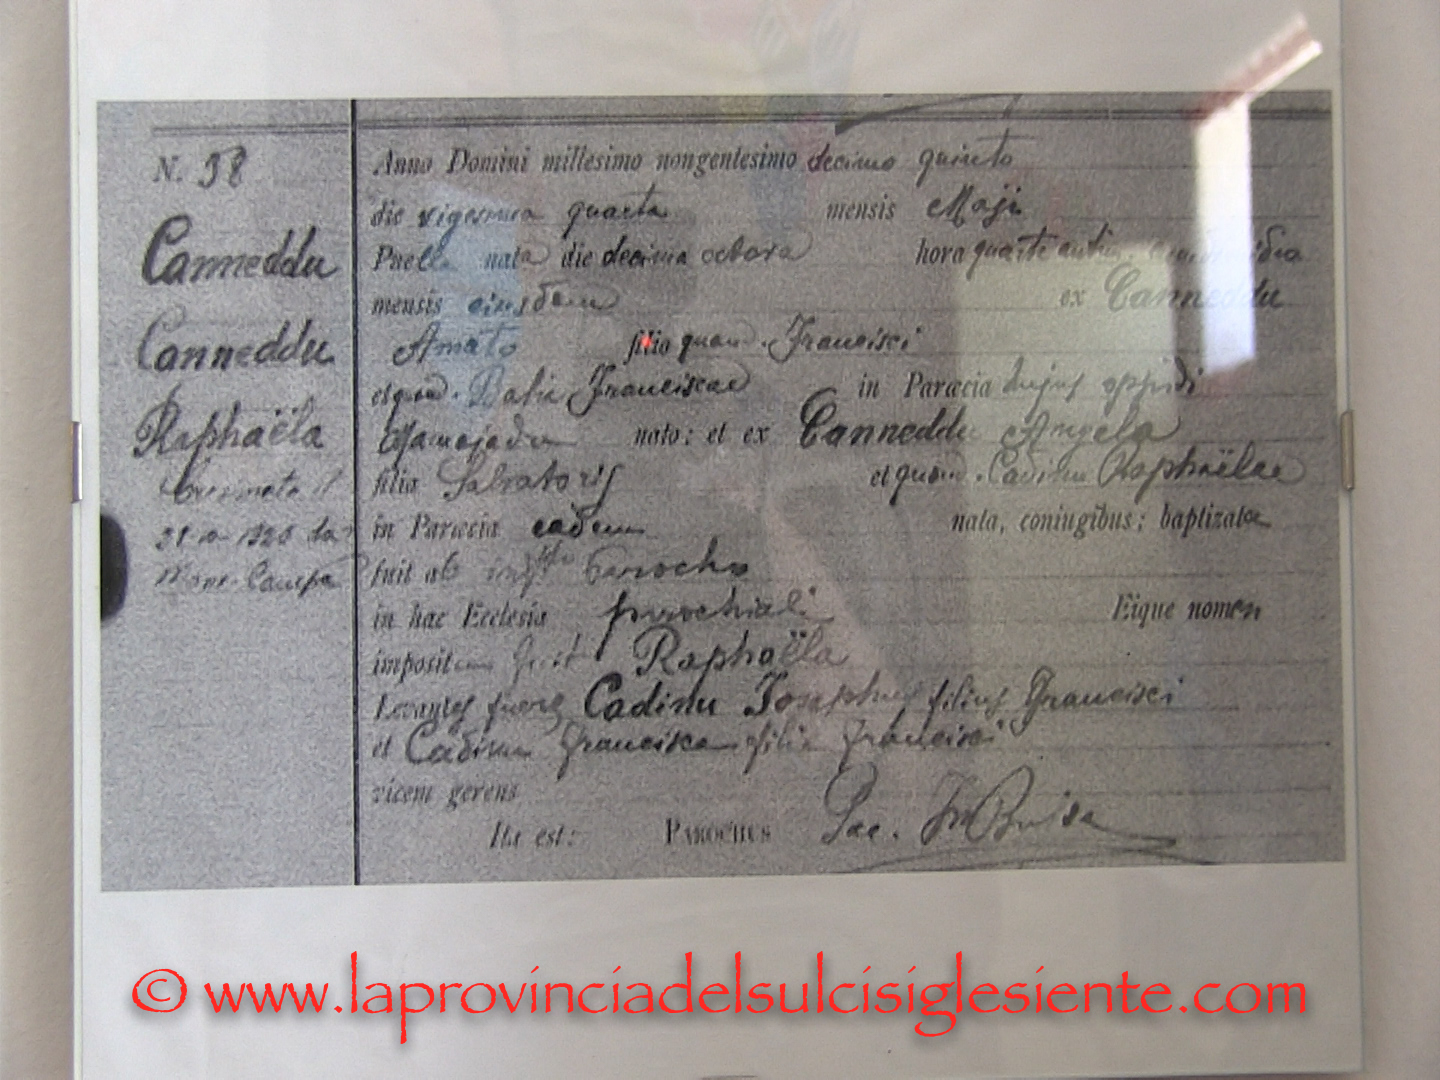 N. 58
Canneddu
Canneddu
Raphaëla
Anno Domini millesimo nongentesimo decimo quinto
die vigesima quarta mensis Maji
Puella nata die decima octava hora quarta
mensis ejusdem ex Canneddu
Amato filio quond. Francisci
et quond. Franciscae in Paræcia hujus oppidi
nato: et ex Canneddu Angela
filia Salvatoris et quond. Cadinu Raphaëlae
in Paræcia eadem nata, coniugibus; baptizata
fuit ab Parocho
in hac Ecclesia parochiali Eique nomen
impositum fuit Raphaëla
Levantes fuere Cadinu Josephus filius Francisci
et Cadinu Francisca filia Francisci
vicem gerens
Ita est: PAROCHUS Sac.
© www.laprovinciadelsulcisiglesiente.com